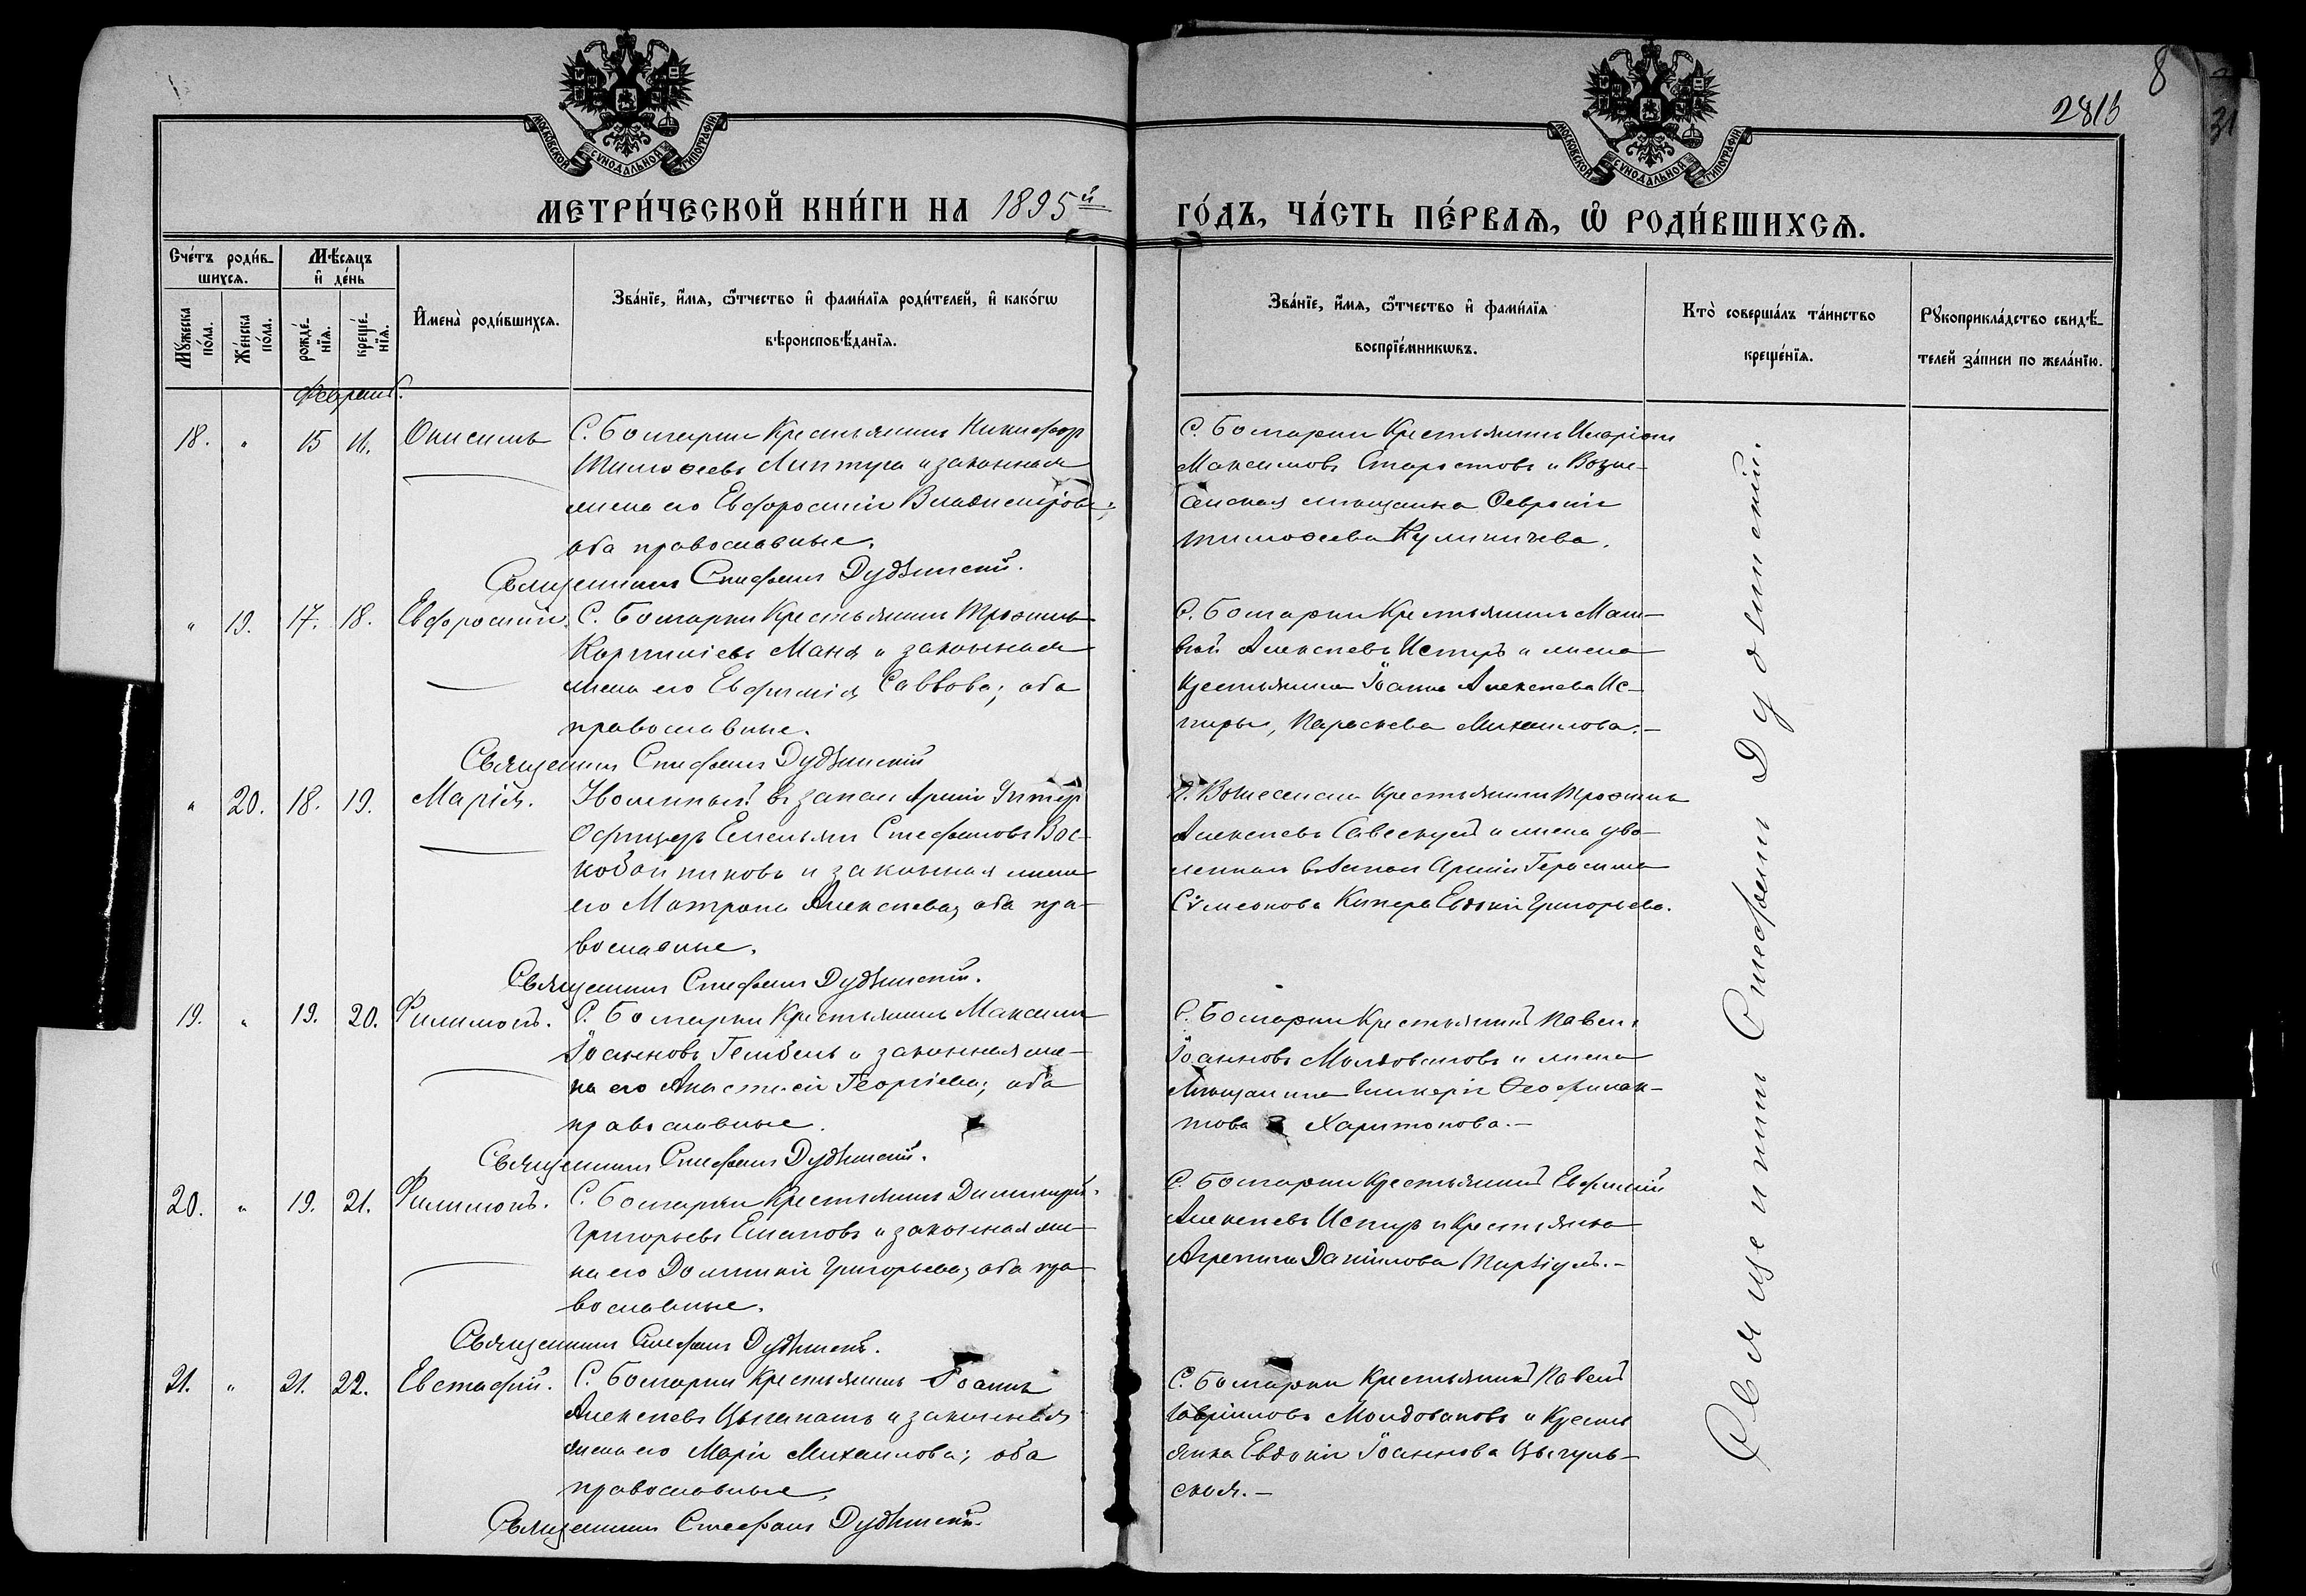 8
281б
МОСКОВСКОЙ СѴНОДАЛЬНОЙ ТИПОГРАФІИ
МОСКОВСКОЙ СѴНОДАЛЬНОЙ ТИПОГРАФІИ
МЕТРИ́ЧЕСКОЙ КНИ́ГИ НА 1895й
ГО́ДЪ, ЧА́СТЬ ПЕ́РВАѦ, Ѽ РОДИ́ВШИХСѦ.
Сче́тъ роди́в-
шихсѧ.
Мѣ́сѧцъ
и҆ де́нь
Мꙋ́жеска по́ла.
Же́нска по́ла.
рожде́-нїѧ.
креще́-нїѧ.
И҆мена̀ роди́вшихсѧ.
Зва́нїе, и҆́мѧ, ѻ҆́тчество и҆ фами́лїѧ роди́телей, и҆ како́гѡ
вѣроисповѣ́данїѧ.
Зва́нїе, и҆́мѧ, ѻ҆́тчество и҆ фами́лїѧ
воспрїе́мникѡвъ.
Кто̀ соверша́лъ та́инство
креще́нїѧ.
Рꙋкоприкла́дство свидѣ́-
телей за́писи по жела́нїю.
Февраль.
18. " 15 16. Онисимъ
С. Болгарки Крестьянинъ Никифоръ
Тимоѳеевъ Липтуга и законная
жена его Евфросинія Владимірова;
оба православные.
Священникъ Стефанъ Дудзинскій.
С. Болгарки Крестьянинъ Иларіонъ
Максимовъ Старостовъ и Возне-
сенская мѣщанка Февронія
Тимоѳеева Куликичева.
" 19. 17. 18. Евфросинія.
С. Болгарки Крестьянинъ Трофимъ
Корниліевъ Маня и законная
жена его Евфимія Саввова; оба
православные.
Священникъ Стефанъ Дудзинскій
С. Болгарки Крестьянинъ Мат-
вей Алексѣевъ Испиръ и жена
крестьянина Іоанна Алексѣева Ис-
пиры, Параскева Михаилова.-
" 20. 18. 19. Марія.
Уволенный въ запасъ Арміи Унтеръ
Офицеръ Емельянъ Стефановъ Вос-
кобойниковъ и законная жена
его Матрона Алексѣева, оба пра-
вославные.
Священникъ Стефанъ Дудзинскій.
Г. Вознесенска Крестьянинъ Трофимъ
Алексѣевъ и жена уво-
леннаго въ запасъ Арміи Герасима
Сѵмеонова Кипера Евдокія Григорьева.
19. " 19. 20. Филимонъ.
С. Болгарки Крестьянинъ Максимъ
Іоанновъ и законная же-
на его Анастасія Георгіева; оба
православные.
Священникъ Стефанъ Дудзинскій.
С. Болгарки Крестьянинъ Павелъ
Іоанновъ Молдовановъ и жена
мѣщанина Гликерія Ѳеофилак-
това Харитонова.-
20. " 19. 21. Филимонъ.
С. Болгарки Крестьянинъ Димитрій
Григорьевъ и законная же-
на его Домникія Григорьева, оба пра-
вославные.
Священникъ Стефанъ Дудзинскій.
С. Болгарки Крестьянинъ Евфимій
Алексѣевъ Испиръ и Крестьянка
Агрепина Даніилова
21. " 21. 22. Евстафій.
С. Болгарки Крестьянинъ Іоаннъ
Алексѣевъ и законная
жена его Марія Михаилова; оба
православные.
Священникъ Стефанъ Дудзинскій.
С. Болгарки Крестьянинъ Павелъ
Гавріиловъ Молдовановъ и Кресть
янка Евдокія Іоаннова Цыгуль-
ская.-
Священникъ Стефанъ Дудзинскій.